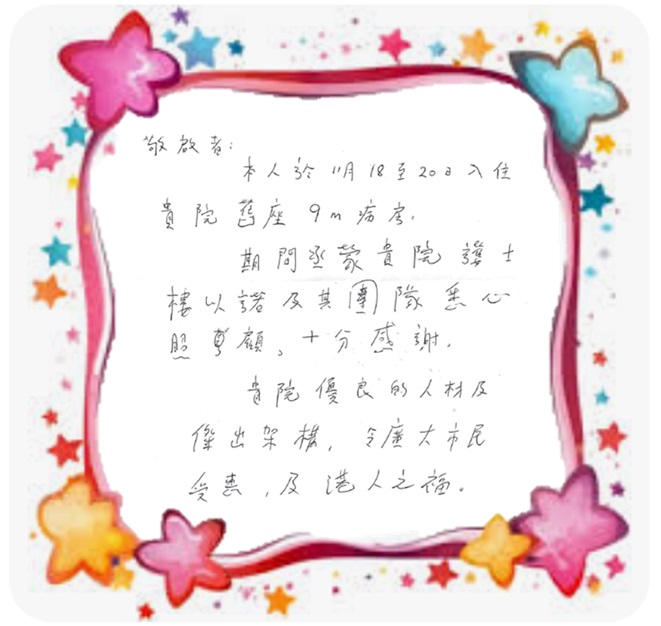 敬啟者:
本人於11月18至20日入住
貴院舊座9m病房.
期間丞蒙貴院護士
樓以諾及其團隊悉心
照顧、十分感謝.
貴院優良的人材及
傑出架構,令廣大市民
受惠,及港人之福。